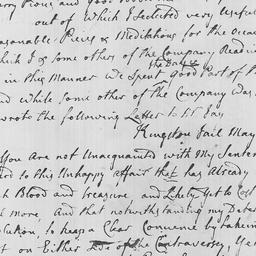 out of Which I Selected very Usefull
easonable Pieces & Meditations for the Occa
hich I & some others of the Company Read in
the Day &
in this Manner We Spent good Part of
nd While Some other of the Company Was
wrote the following Letter to Jay
Kingston Jail May
You Are not Unacquanted with My Senten
ard to this Unhappy affair that has Already
ch Blood and treasure and Likely Yet to Cost
h More. And that notwithstanding my Deter
olution, to keep a Clear Concience by takein
t on Either Side of the Controversey, Yet